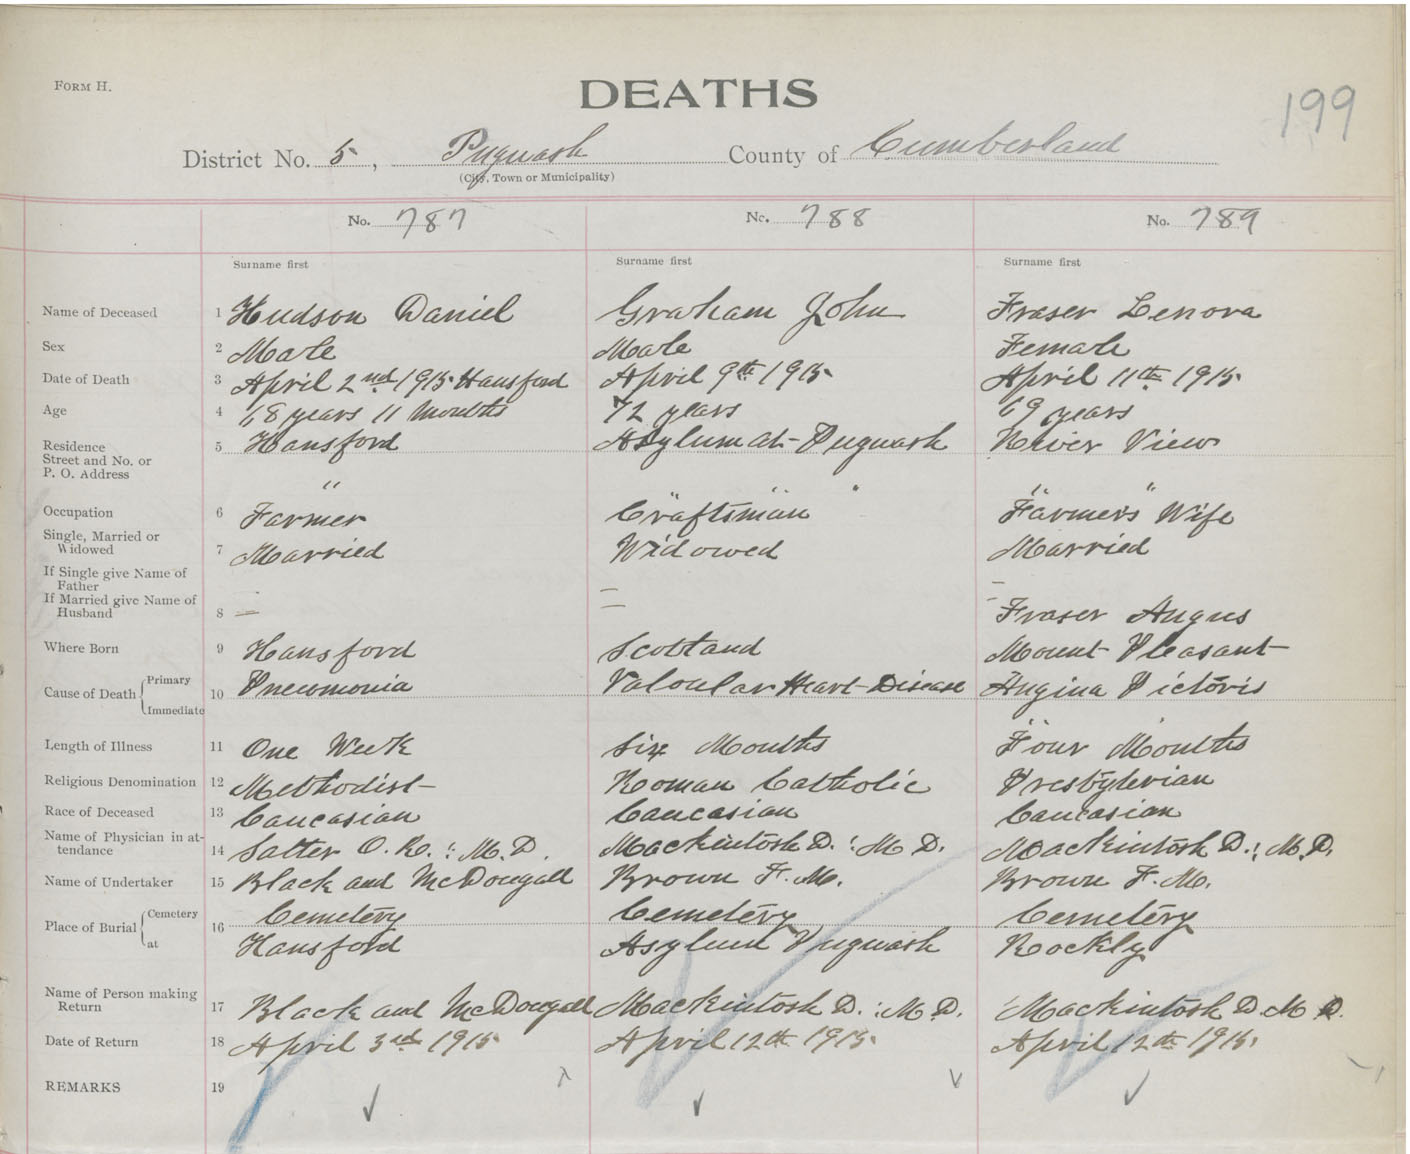 FORM H.
DEATHS
199
District No. 5, Pugwash County of Cumberland
(City, Town or Municipality)
No. 787 No. 788 No. 789
Surname first Surname first Surname first
Name of Deceased 1 Hudson Daniel Graham John Fraser Lenora
Sex 2 Male Male Female
Date of Death 3 April 2nd 1915 Hansford April 9th 1915 April 11th 1915
Age 4 68 years 11 Months 72 years 69 years
Residence
Street and No. or
P. O. Address 5 Hansford Asylum at Pugwash River View
" " " " " "
Occupation 6 Farmer Craftsman Farmer's Wife
Single, Married or
Widowed 7 Married Widowed Married
If Single give Name of
Father – –
If Married give Name of
Husband 8 – – Fraser Angus
Where Born 9 Hansford Scotland Mount Pleasant
Cause of Death { Primary
Immediate 10 Pneumonia Valvular Heart Disease Angina Pictoris
Length of Illness 11 One Week Six Months Four Months
Religious Denomination 12 Methodist Roman Catholic Presbyterian
Race of Deceased 13 Caucasian Caucasian Caucasian
Name of Physician in at-
tendance 14 Salter O. R. : M. D. Mackintosh D. : M D. Mackintosh D. : M. D.
Name of Undertaker 15 Black and McDougall Brown F. M. Brown F. M.
Place of Burial { Cemetery
at 16 Cemetery Cemetery Cemetery
Hansford Asylum Pugwash Rockly
Name of Person making
Return 17 Black and McDougall Mackintosh D. : M. D. Mackintosh D. M D.
Date of Return 18 April 3rd 1915 April 12th 1915 April 12th 1915.
REMARKS 19